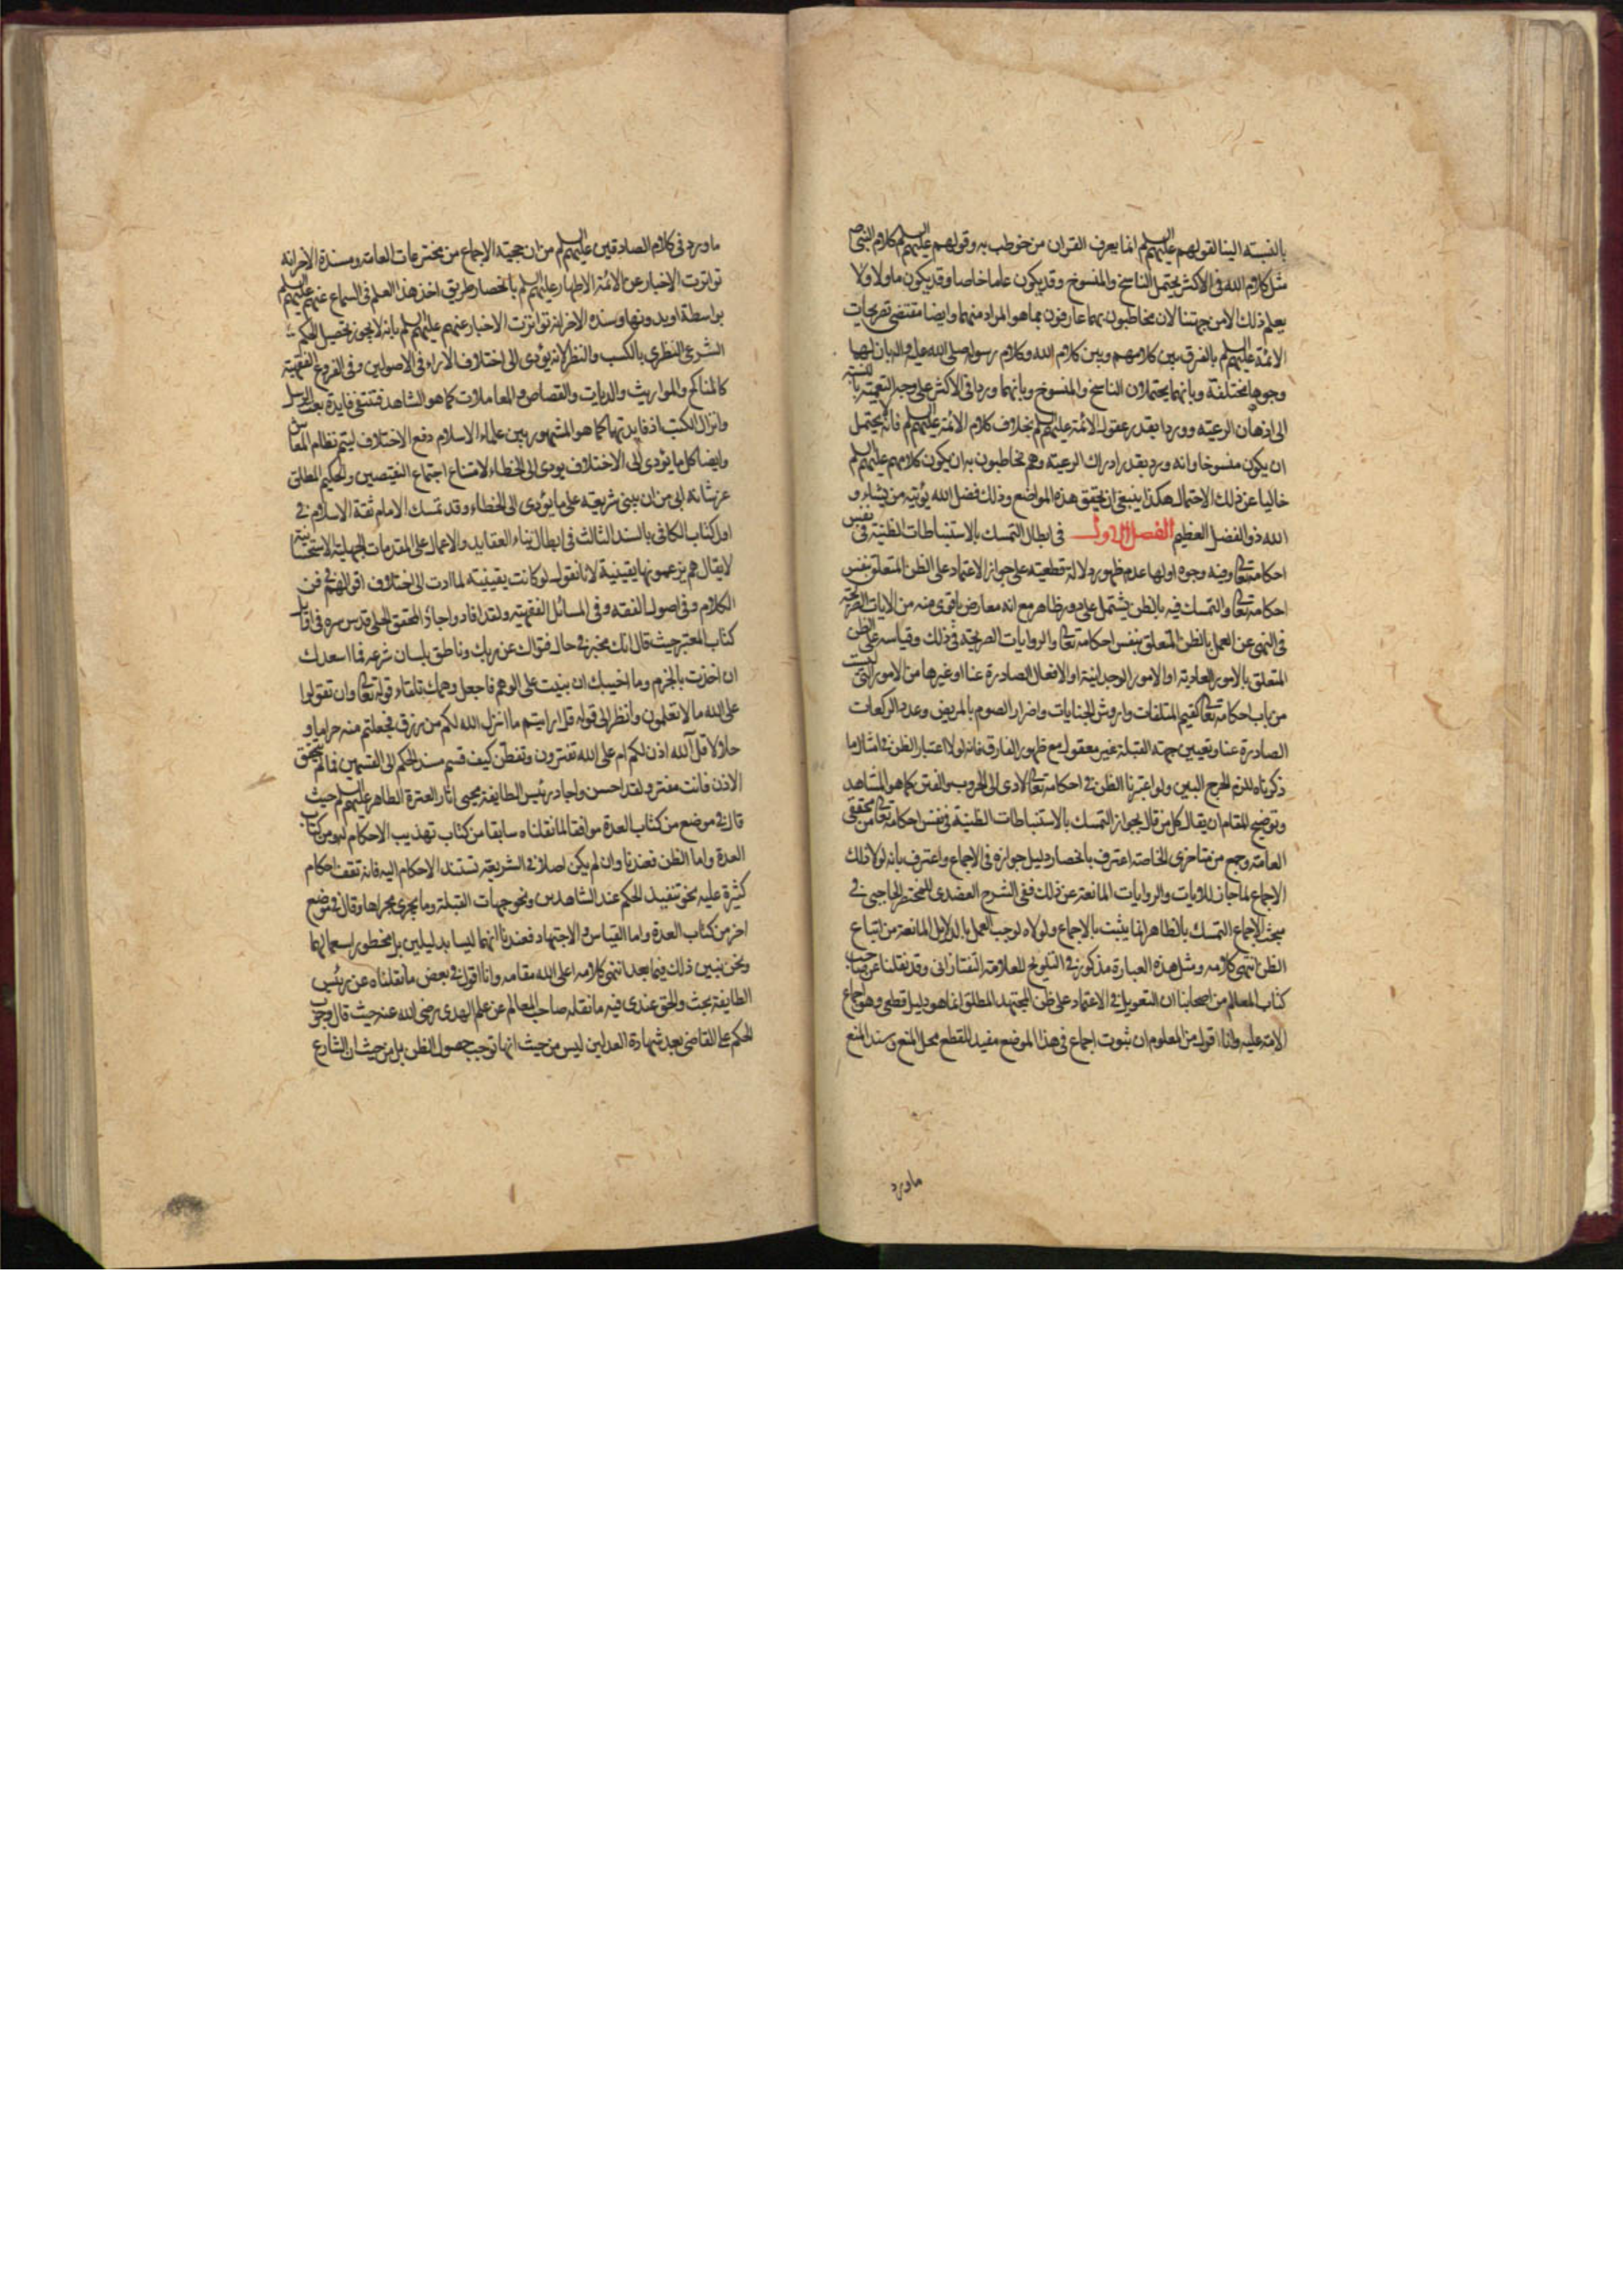 بالنسبة الينا لقولهم عليهم السلم انما يعرف القران من خوطب به وقولهم عليهم السلم كلام النبي ص
مثل كلام الله في الاكثر يحتمل الناسخ والمنسوخ وقد يكون عاما خاصا وقد يكون ماولا ولا
يعلم ذلك الا من جهتنا لان مخاطبون بهما عارفون بما هو المراد منهما وايضا مقتضى تصريحات
الائمة عليهم السلم بالفرق بين كلامهم وبين كلام الله وكلام رسوله صلى الله عليه واله بان لهما
وجوها مختلفة وبانهما يحتملان الناسخ والمنسوخ وبانهما وردا في الاكثر على وجه التعمية بالنسبة
الى اذهان الرعية ووردا بقدر عقول الائمة عليهم السلم بخلاف كلام الائمة عليهم السلم فانه يحتمل
ان يكون منسوخا وانه ورد بقدر ادراك الرعية وهم مخاطبون به ان يكون كلامهم عليهم السلم
خاليا عن ذلك الاحتمال هكذا ينبغي ان يحقق هذه المواضع وذلك فضل الله يؤتيه من يشاء و
الله ذو الفضل العظيم الفصل الاول في ابطال التمسك بالاستنباطات الظنية في نفس
احكامه تعالى وفيه وجوه اولها عدم ظهور دلالة قطعية على جواز الاعتماد على الظن المتعلق بنفس
احكامه تعالى والتمسك فيه بالظن يشتمل على دور ظاهر مع انه معارض باقوى منه من الايات الصريحة
في النهي عن العمل بالظن المتعلق بنفس احكامه تعالى والروايات الصريحة في ذلك وقياسه على الظن
المتعلق بالامور العادية او الامور الوجدانية او الافعال الصادرة عنا او غيرها من الامور التي ليست
من باب احكامه تعالى كقيم المتلفات واروش الجنايات واضرار الصوم بالمريض وعدد الركعات
الصادرة عنا وتعيين جهة القبلة غير معقول مع ظهور الفارق فانه لولا اعتبار الظن في امثال ما
ذكرناه للزم الحرج البين ولو اعتبرنا الظن في احكامه تعالى لادى الى الحروب والفتن كما هو المشاهد
وتوضيح المقام ان يقال كل من قال بجواز التمسك بالاستنباطات الظنية في نفس احكامه تعالى من محققي
العامة وجمع من متاخري الخاصة اعترف بانحصار دليل جوازه في الاجماع واعترف بانه لولا ذلك
الاجماع لما جاز للايات والروايات المانعة عن ذلك ففي الشرح العضدي للمختصر الحاجبي في
مبحث الاجماع التمسك بالظاهر انما يثبت بالاجماع ولولاه لوجب العمل بالدلايل المانعة من اتباع
الظن انتهى كلامه ومثل هذه العبارة مذكور في التلويح للعلامة التفتازاني وقد نقلنا عن صاحب
كتاب المعالم من اصحابنا ان التعويل في الاعتماد على ظن المجتهد المطلق انما هو دليل قطعي وهو اجماع
الامة عليه وانا اقول من المعلوم ان ثبوت اجماع في هذا الموضع مفيد للقطع محل المنع وسند المنع
ماورد
ما ورد في كلام الصادقين عليهم السلم من ان حجية الاجماع من مخترعات العامة ومسندة الاخرانه
تواترت الاخبار عن الائمة الاطهار عليهم السلم بانحصار طريق اخذ هذا العلم في السماع عنهم عليهم السلم
بواسطة او بدونها وسنده الاخر انه تواترت الاخبار عنهم عليهم السلم بانه لا يجوز تحصيل الحكم
الشرعي النظري بالكسب والنظر لانه يؤدي الى اختلاف الاراء في الاصولين وفي الفروع الفقهية
كالمناكح والمواريث والديات والقصاص والمعاملات كما هو المشاهد فتنتفي فايدة بعث الرسل
وانزال الكتب اذ فايدتها كما هو المشهور بين علماء الاسلام دفع الاختلاف ليتم نظام المعاش
وايضا كل ما يؤدي الى الاختلاف يودي الى الخطاء لامتناع اجتماع النقيضين والحكيم المطلق
عز شانه ابى من ان يبنى شريعته على ما يؤدي الى الخطاء وقد تمسك الامام ثقة الاسلام في
اول كتاب الكافي بالسند الثالث في ابطال بناء العقايد والاعمال على المقدمات الجهلية الاستحسانية
لا يقال هم يزعمونها يقينية لانا نقول لو كانت يقينية لما ادت الى اختلاف اقوالهم في فن
الكلام وفي اصول الفقه وفي المسائل الفقهية ولقد افاد واجاد المحقق الحلي قدس سره في اوايل
كتاب المعتبر حيث قال انك مخبر في حال فتواك عن ربك وناطق بلسان شرعه فما اسعدك
ان اخذت بالجزم وما اخيبك ان بنيت على الوهم فاجعل وهمك تلقاء قوله تعالى وان تقولوا
على الله ما لا تعلمون وانظر الى قوله قل ارايتم ما انزل الله لكم من رزق فجعلتم منه حراما و
حلالا قل آلله اذن لكم ام على الله تفترون وتفطن كيف قسم مسند الحكم الى القسمين فما لم يتحقق
الاذن فانت مفتر ولقد احسن واجاد رئيس الطايفة محيى اثار العترة الطاهر عليهم السلم حيث
قال في موضع من كتاب العدة موافقا لما نقلناه سابقا من كتاب تهذيب الاحكام من كتاب
العدة واما الظن فعندنا وان لم يكن اصلا في الشريعة تستند الاحكام اليه فانه تقف احكام
كثيرة عليه نحو تنفيذ الحكم عند الشاهدين ونحو جهات القبلة وما يجري مجراها وقال في موضع
اخر من كتاب العدة واما القياس والاجتهاد فعندنا انهما ليسا بدليلين بل محظور استعمالهما
ونحن نبين ذلك فيما بعد انتهى كلامه اعلى الله مقامه وانا اقول في بعض ما نقلناه عن رئيس
الطايفة بحث والحق عندي فيه ما نقله صاحب المعالم عن علم الهدى رضي الله عنه حيث قال وجوب
الحكم على القاضي بعد شهادة العدلين ليس من حيث انها توجب حصول الظن بل من حيث ان الشارع